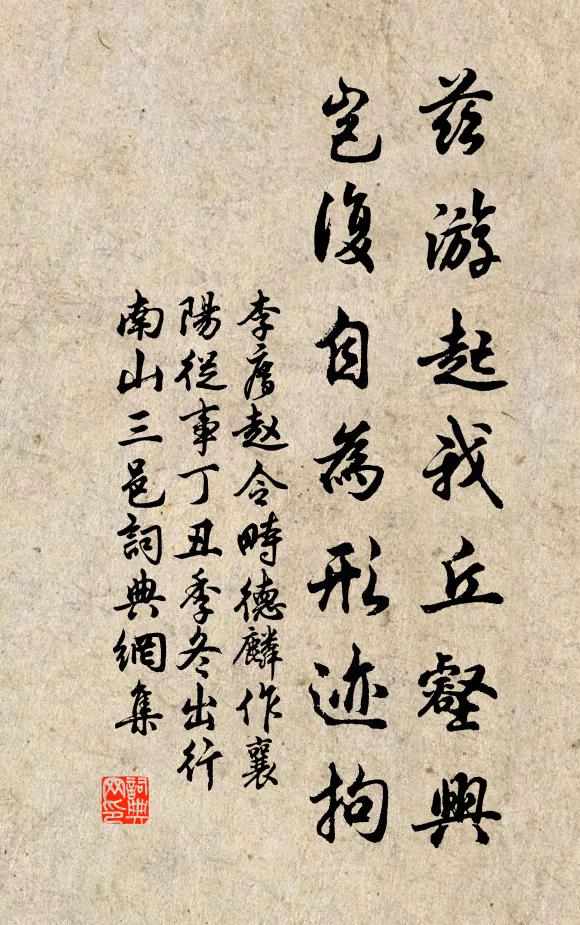 茲游起我丘壑興
豈復自為形迹拘
李廌赵令畤德麟作襄
陽從事丁丑季冬出行
南山三邑詞典網集
詞典網印